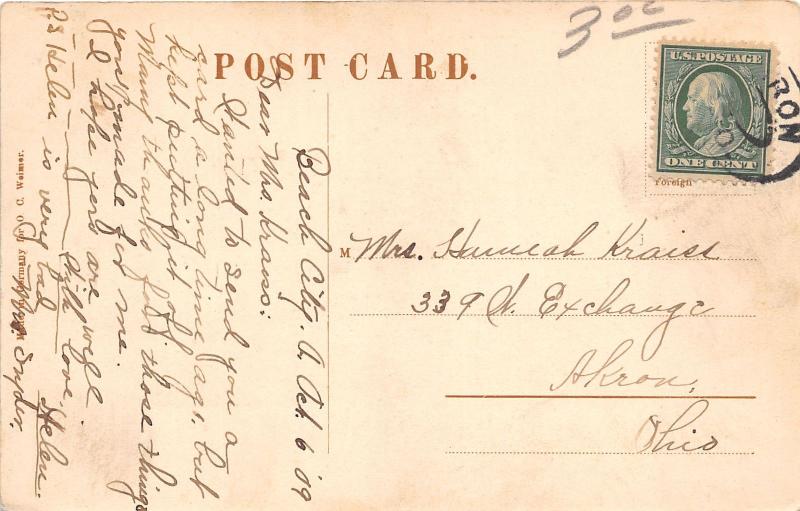 3 00
POST CARD.
U.S. POSTAGE
ONE CENT
RON
O
Foreign
Beach City, O, Oct. 6 '09
Dear Mrs. Krauss:
Wanted to send you a
card a long time ago, but
kept putting it off.
Many thanks for those things
you made for me.
I hope yers are well
With love,
Helen.
P.S Helen is very bad
Snyder.
many for O. C. Weimer.
M
Mrs. Hannah Kraiss
339 W. Exchange
Akron,
Ohio